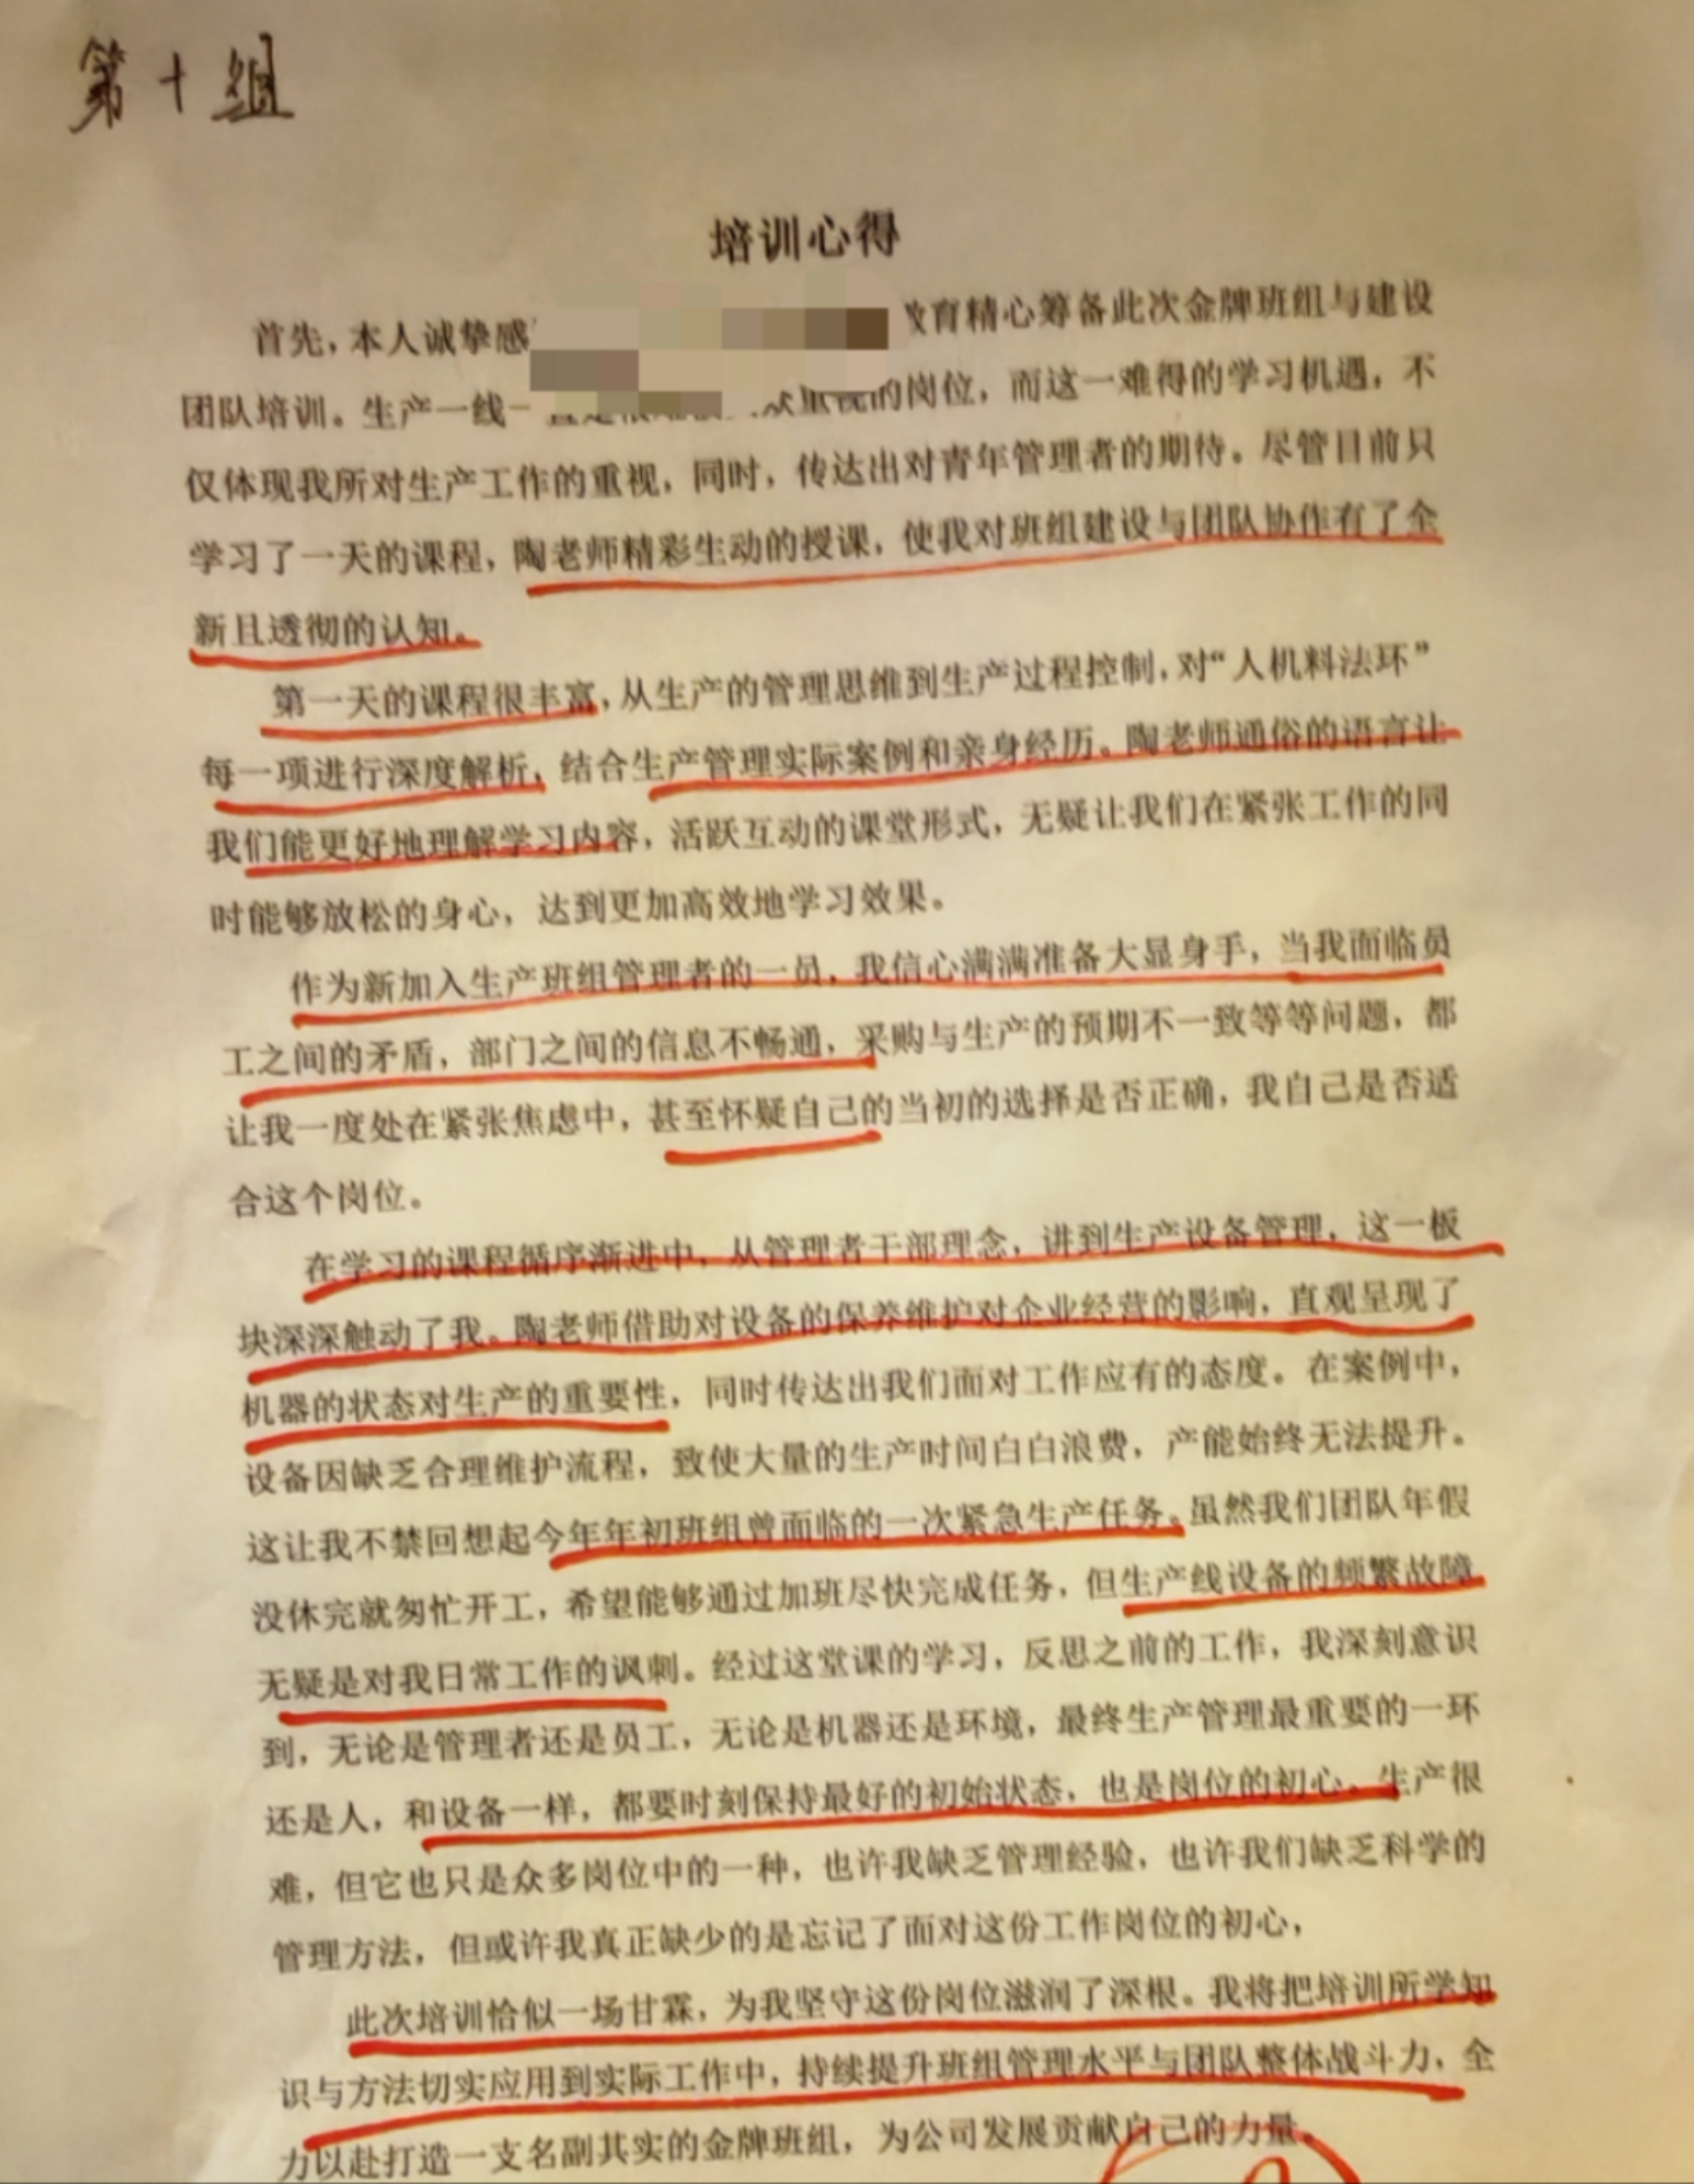 第十组
培训心得
首先，本人诚挚感 教育精心筹备此次金牌班组与建设
团队培训。生产一线一直是 的岗位，而这一难得的学习机遇，不
仅体现我所对生产工作的重视，同时，传达出对青年管理者的期待。尽管目前只
学习了一天的课程，陶老师精彩生动的授课，使我对班组建设与团队协作有了全
新且透彻的认知。
第一天的课程很丰富，从生产的管理思维到生产过程控制，对“人机料法环”
每一项进行深度解析，结合生产管理实际案例和亲身经历。陶老师通俗的语言让
我们能更好地理解学习内容，活跃互动的课堂形式，无疑让我们在紧张工作的同
时能够放松的身心，达到更加高效地学习效果。
作为新加入生产班组管理者的一员，我信心满满准备大显身手，当我面临员
工之间的矛盾，部门之间的信息不畅通，采购与生产的预期不一致等等问题，都
让我一度处在紧张焦虑中，甚至怀疑自己的当初的选择是否正确，我自己是否适
合这个岗位。
在学习的课程循序渐进中，从管理者干部理念，讲到生产设备管理，这一板
块深深触动了我。陶老师借助对设备的保养维护对企业经营的影响，直观呈现了
机器的状态对生产的重要性，同时传达出我们面对工作应有的态度。在案例中，
设备因缺乏合理维护流程，致使大量的生产时间白白浪费，产能始终无法提升。
这让我不禁回想起今年年初班组曾面临的一次紧急生产任务。虽然我们团队年假
没休完就匆忙开工，希望能够通过加班尽快完成任务，但生产线设备的频繁故障
无疑是对我日常工作的讽刺。经过这堂课的学习，反思之前的工作，我深刻意识
到，无论是管理者还是员工，无论是机器还是环境，最终生产管理最重要的一环
还是人，和设备一样，都要时刻保持最好的初始状态，也是岗位的初心。生产很
难，但它也只是众多岗位中的一种，也许我缺乏管理经验，也许我们缺乏科学的
管理方法，但或许我真正缺少的是忘记了面对这份工作岗位的初心，
此次培训恰似一场甘霖，为我坚守这份岗位滋润了深根。我将把培训所学知
识与方法切实应用到实际工作中，持续提升班组管理水平与团队整体战斗力，全
力以赴打造一支名副其实的金牌班组，为公司发展贡献自己的力量。